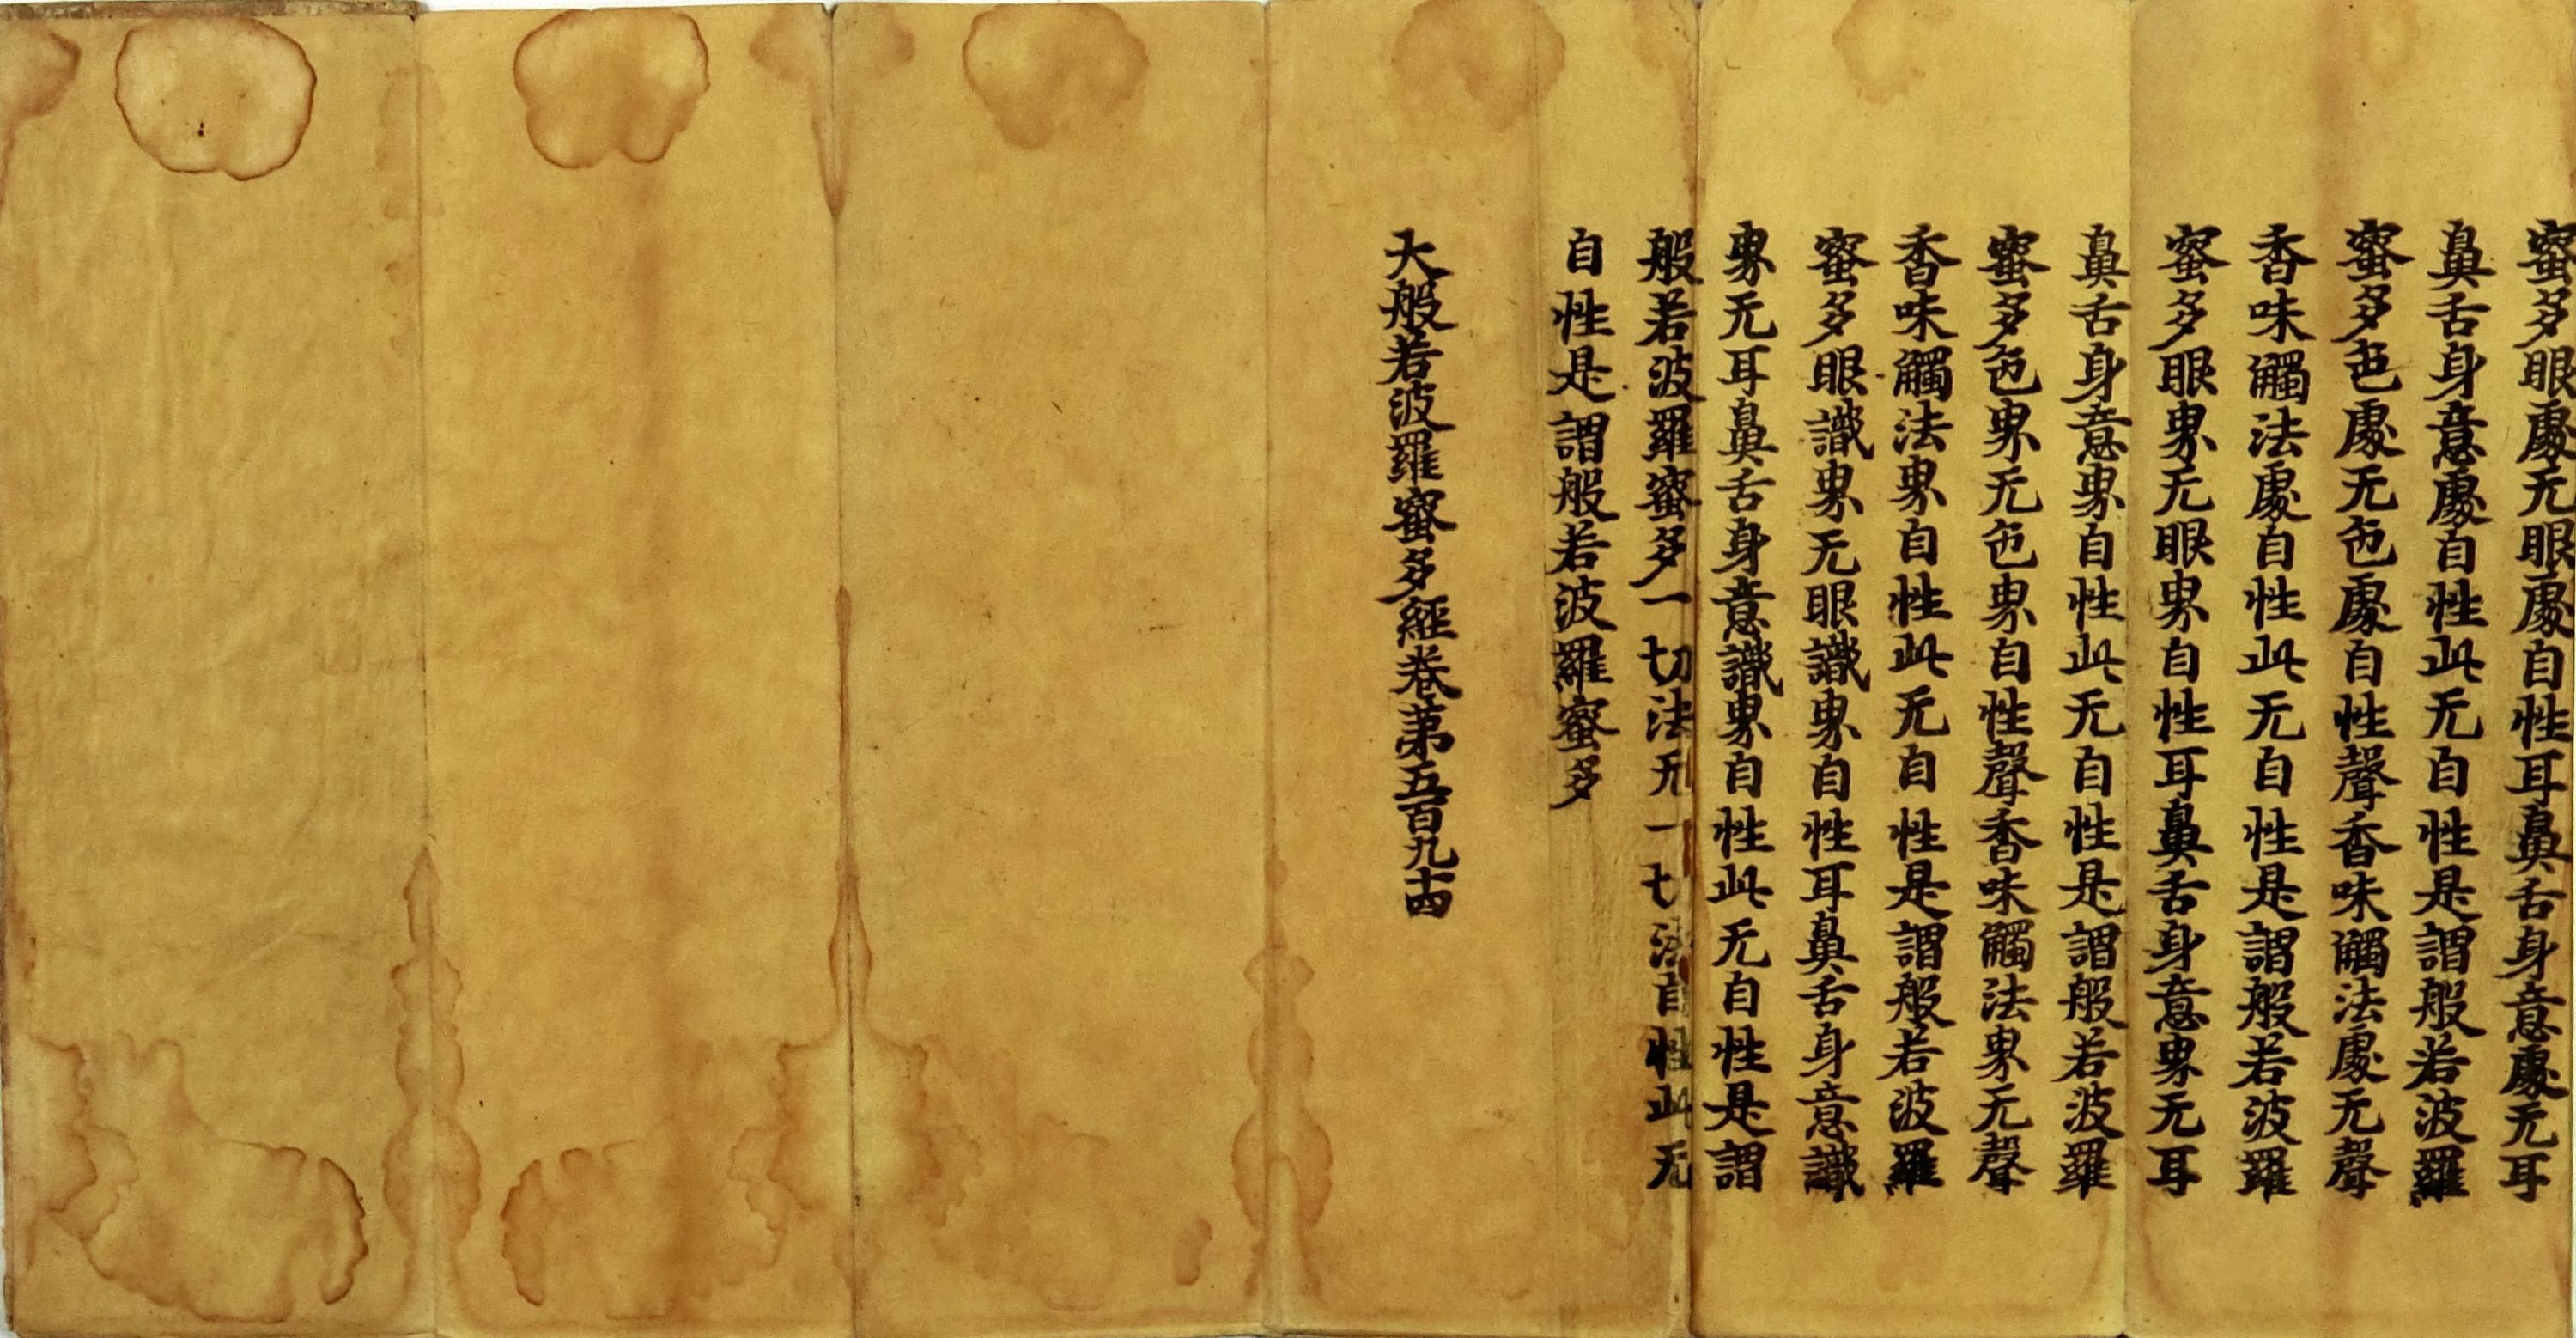 蜜多眼處无眼處自性耳鼻舌身意處无耳
鼻舌身意處自性此无自性是謂般若波羅
蜜多色處无色處自性聲香味觸法處无聲
香味觸法處自性此无自性是謂般若波羅
蜜多眼界无眼界自性耳鼻舌身意界无耳
鼻舌身意界自性此无自性是謂般若波羅
蜜多色界无色界自性聲香味觸法界无聲
香味觸法界自性此无自性是謂般若波羅
蜜多眼識界无眼識界自性耳鼻舌身意識
界无耳鼻舌身意識界自性此无自性是謂
般若波羅蜜多一切法无一切法自性此无
自性是謂般若波羅蜜多
大般若波羅蜜多經卷第五百九十四